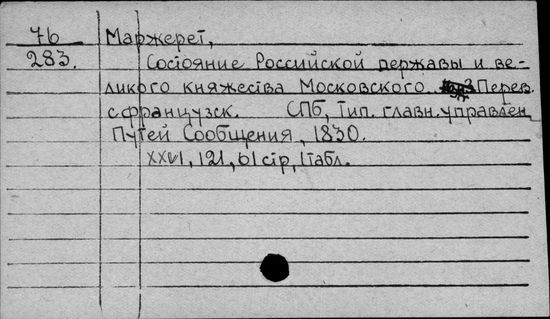 76 Маржерет,
283. Состояние Российской державы и ве-
ликого княжества Московского. Перев.
с французск. СПб, тип. главн. управлен
Путей Сообщения, 1830.
XXVI, 121, 61 стр, 1 табл.